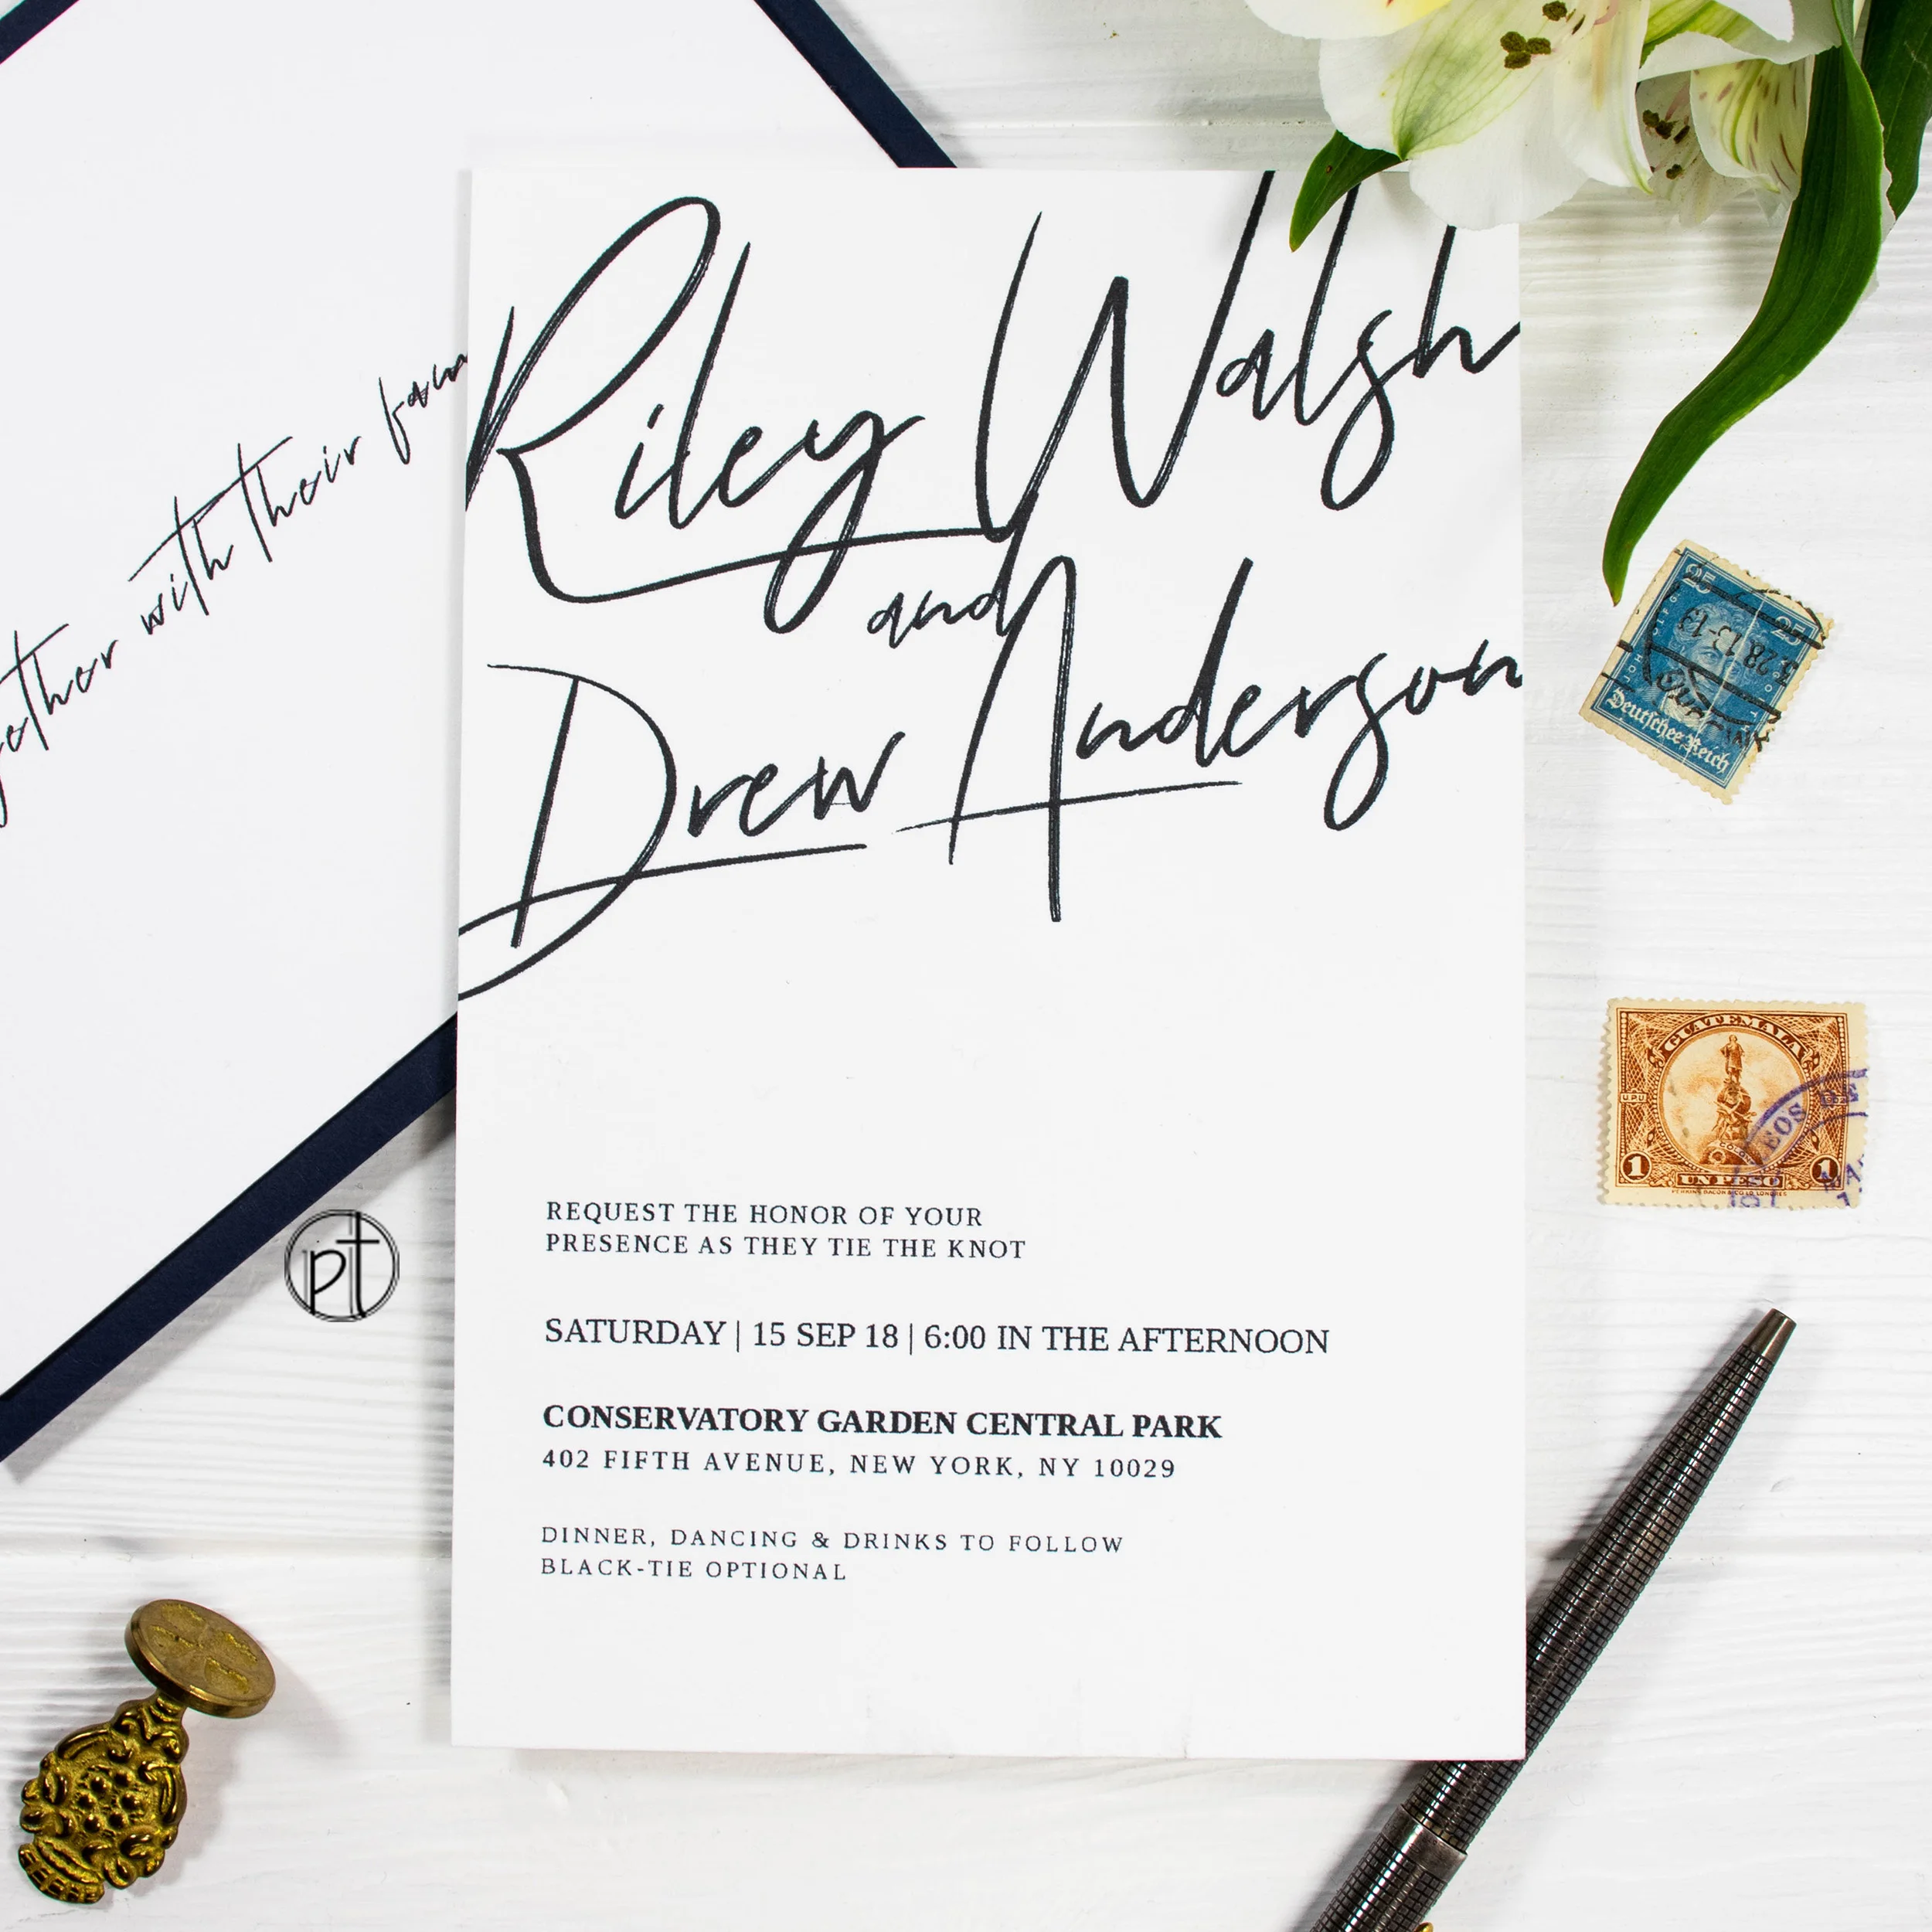 with their
Riley Walsh
and
Drew Anderson
REQUEST THE HONOR OF YOUR
PRESENCE AS THEY TIE THE KNOT
SATURDAY | 15 SEP 18 | 6:00 IN THE AFTERNOON
CONSERVATORY GARDEN CENTRAL PARK
402 FIFTH AVENUE, NEW YORK, NY 10029
DINNER, DANCING & DRINKS TO FOLLOW
BLACK-TIE OPTIONAL
pt
25 25
Deutsches Reich
GUATEMALA
UPU
1 UN PESO 1